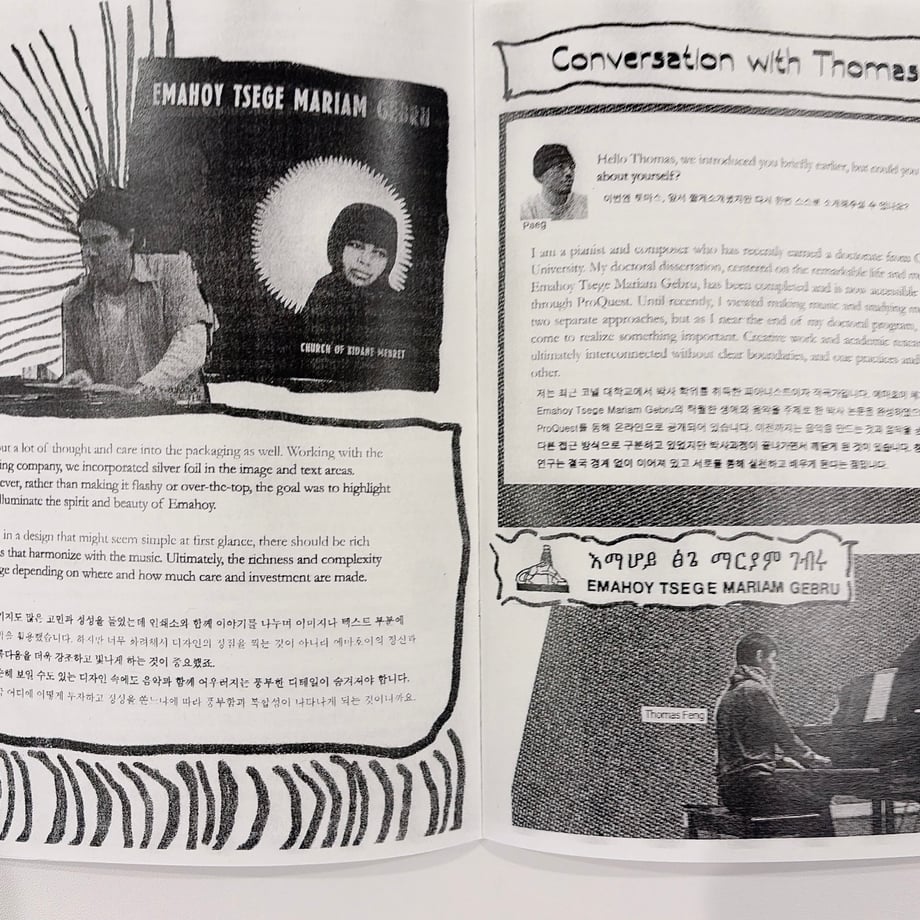 EMAHOY TSEGE MARIAM GEBRU
CHURCH OF KIDANE MEHRET
ut a lot of thought and care into the packaging as well. Working with the
ing company, we incorporated silver foil in the image and text areas.
ever, rather than making it flashy or over-the-top, the goal was to highlight
lluminate the spirit and beauty of Emahoy.
in a design that might seem simple at first glance, there should be rich
s that harmonize with the music. Ultimately, the richness and complexity
ge depending on where and how much care and investment are made.
지도 많은 고민과 정성을 들였는데 인쇄소와 함께 이야기를 나누며 이미지나 텍스트 부분에
활용했습니다. 하지만 너무 화려해서 디자인의 성질을 찍는 것이 아니라 에마호이의 정신과
름다움을 더욱 강조하고 빛나게 하는 것이 중요했죠.
순해 보일 수도 있는 디자인 속에도 음악과 함께 어우러지는 풍부한 디테일이 숨겨져야 합니다.
어디에 어떻게 투자하고 정성을 쏟느냐에 따라 풍부함과 복잡성이 나타나게 되는 것이니까요.
Conversation with Thomas
Hello Thomas, we introduced you briefly earlier, but could you
about yourself?
이번엔 토마스, 앞서 짧게 소개했지만 다시 한번 스스로 소개해주실 수 있나요?
Paeg
I am a pianist and composer who has recently earned a doctorate from C
University. My doctoral dissertation, centered on the remarkable life and m
Emahoy Tsege Mariam Gebru, has been completed and is now accessible
through ProQuest. Until recently, I viewed making music and studying m
two separate approaches, but as I near the end of my doctoral program,
come to realize something important. Creative work and academic resear
ultimately interconnected without clear boundaries, and our practices and
other.
저는 최근 코넬 대학교에서 박사 학위를 취득한 피아니스트이자 작곡가입니다. 에마호이
Emahoy Tsege Mariam Gebru의 탁월한 생애와 음악을 주제로 한 박사 논문을 완성하였으
ProQuest를 통해 온라인으로 공개되어 있습니다. 이전까지는 음악을 만드는 것과 음악을
다른 접근 방식으로 구분하고 있었지만 박사과정이 끝나가면서 깨닫게 된 것이 있습니다.
연구는 결국 경계 없이 이어져 있고 서로를 통해 실천하고 배우게 된다는 점입니다.
እማሆይ ፅጌ ማርያም ገብሩ
EMAHOY TSEGE MARIAM GEBRU
Thomas Feng